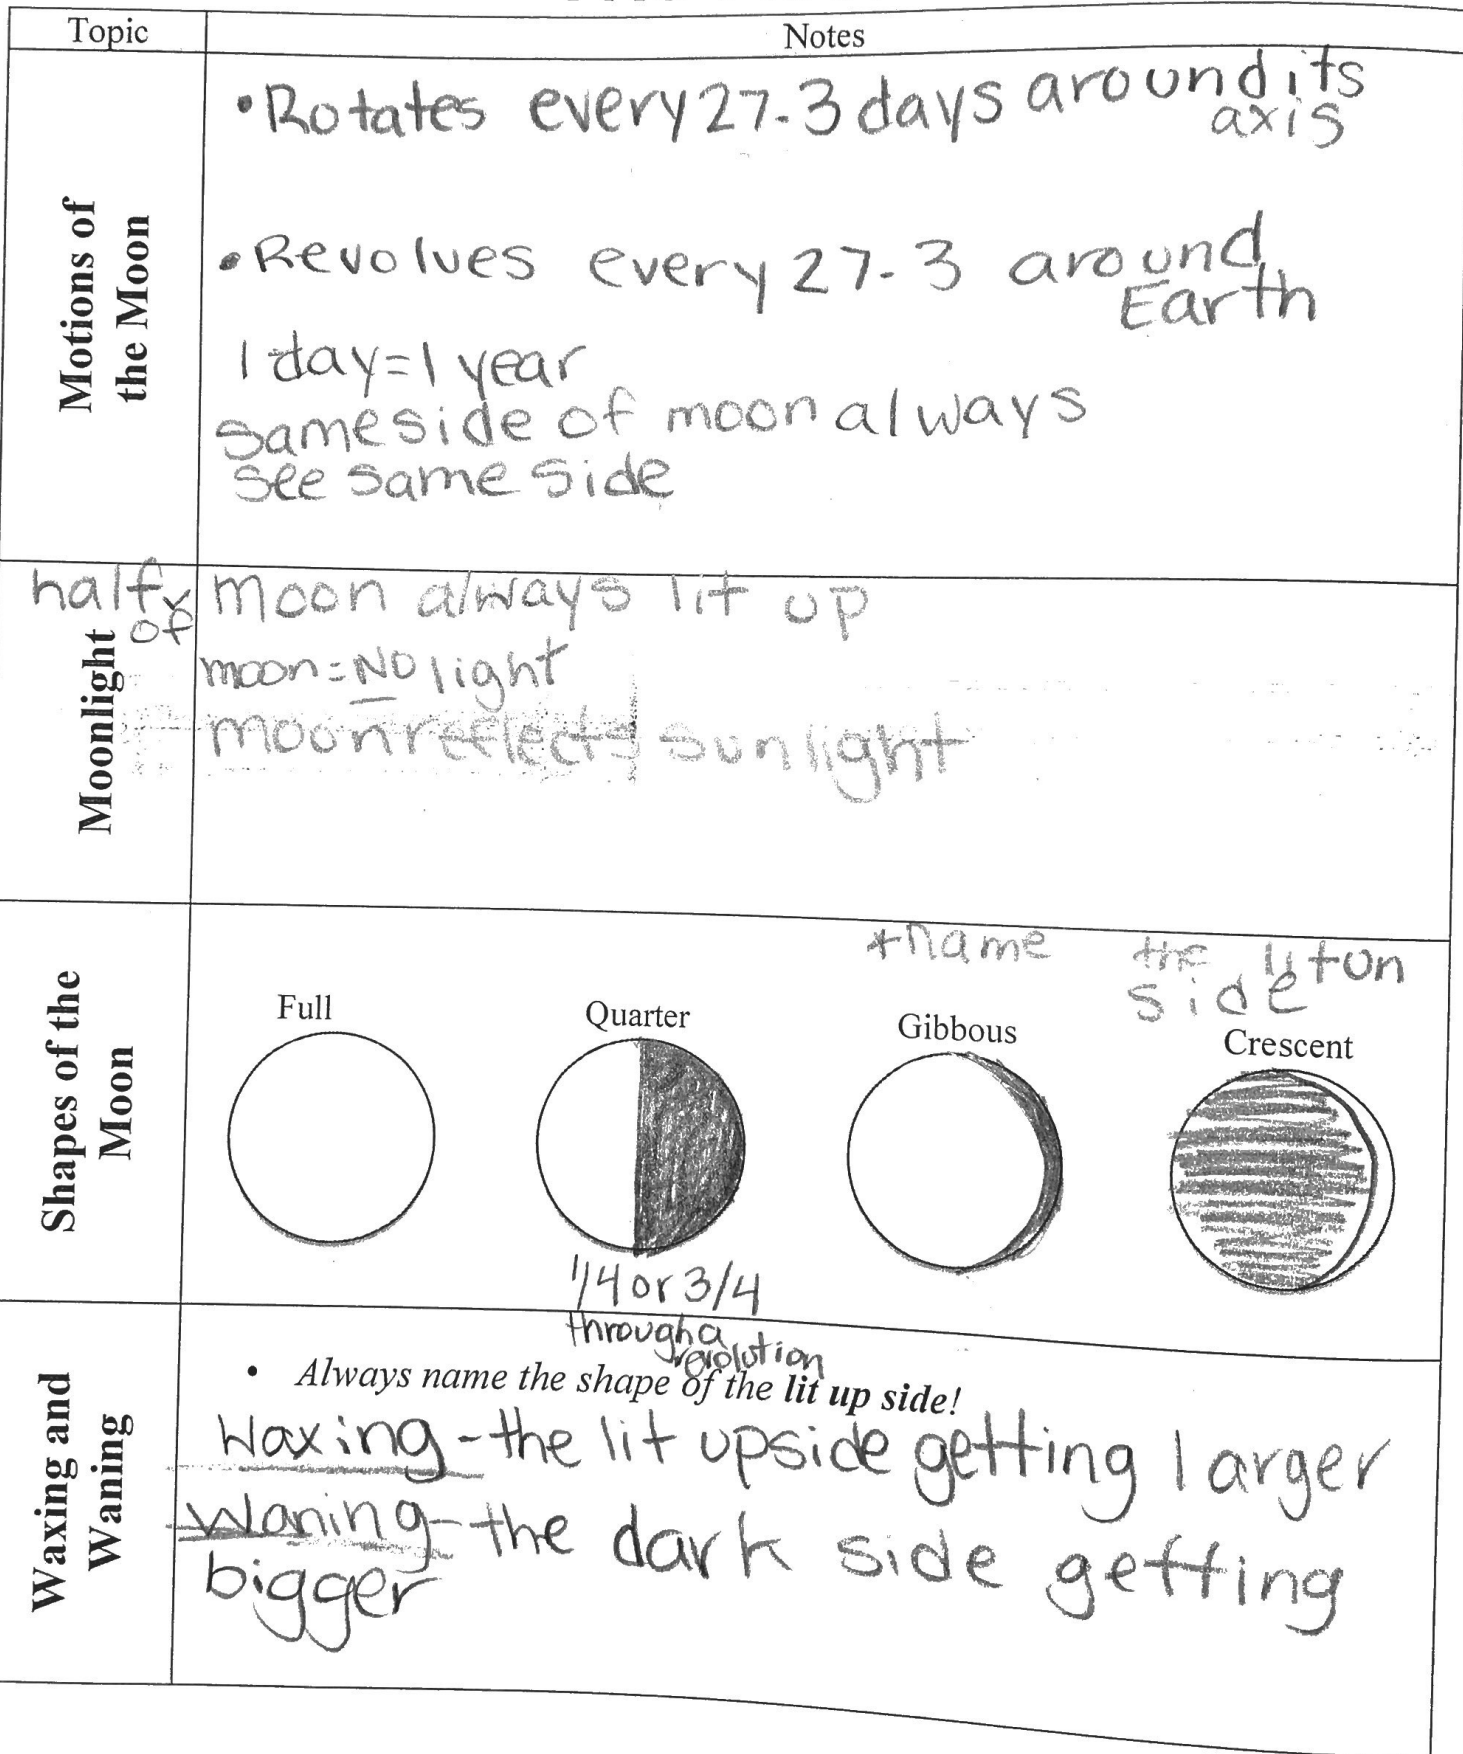 Topic
Notes
Motions of
the Moon
•Rotates every 27.3 days around its
axis
•Revolves every 27.3 around
Earth
1 day=1 year
same side of moon always
see same side
Moonlight
half of moon always lit up
moon=NO light
moon reflects sunlight
Shapes of the
Moon
*name the lit on
side
Full
Quarter
Gibbous
Crescent
1/4 or 3/4
through a
revolution
Waxing and
Waning
• Always name the shape of the lit up side!
Waxing-the lit upside getting larger
Waning-the dark side getting
bigger